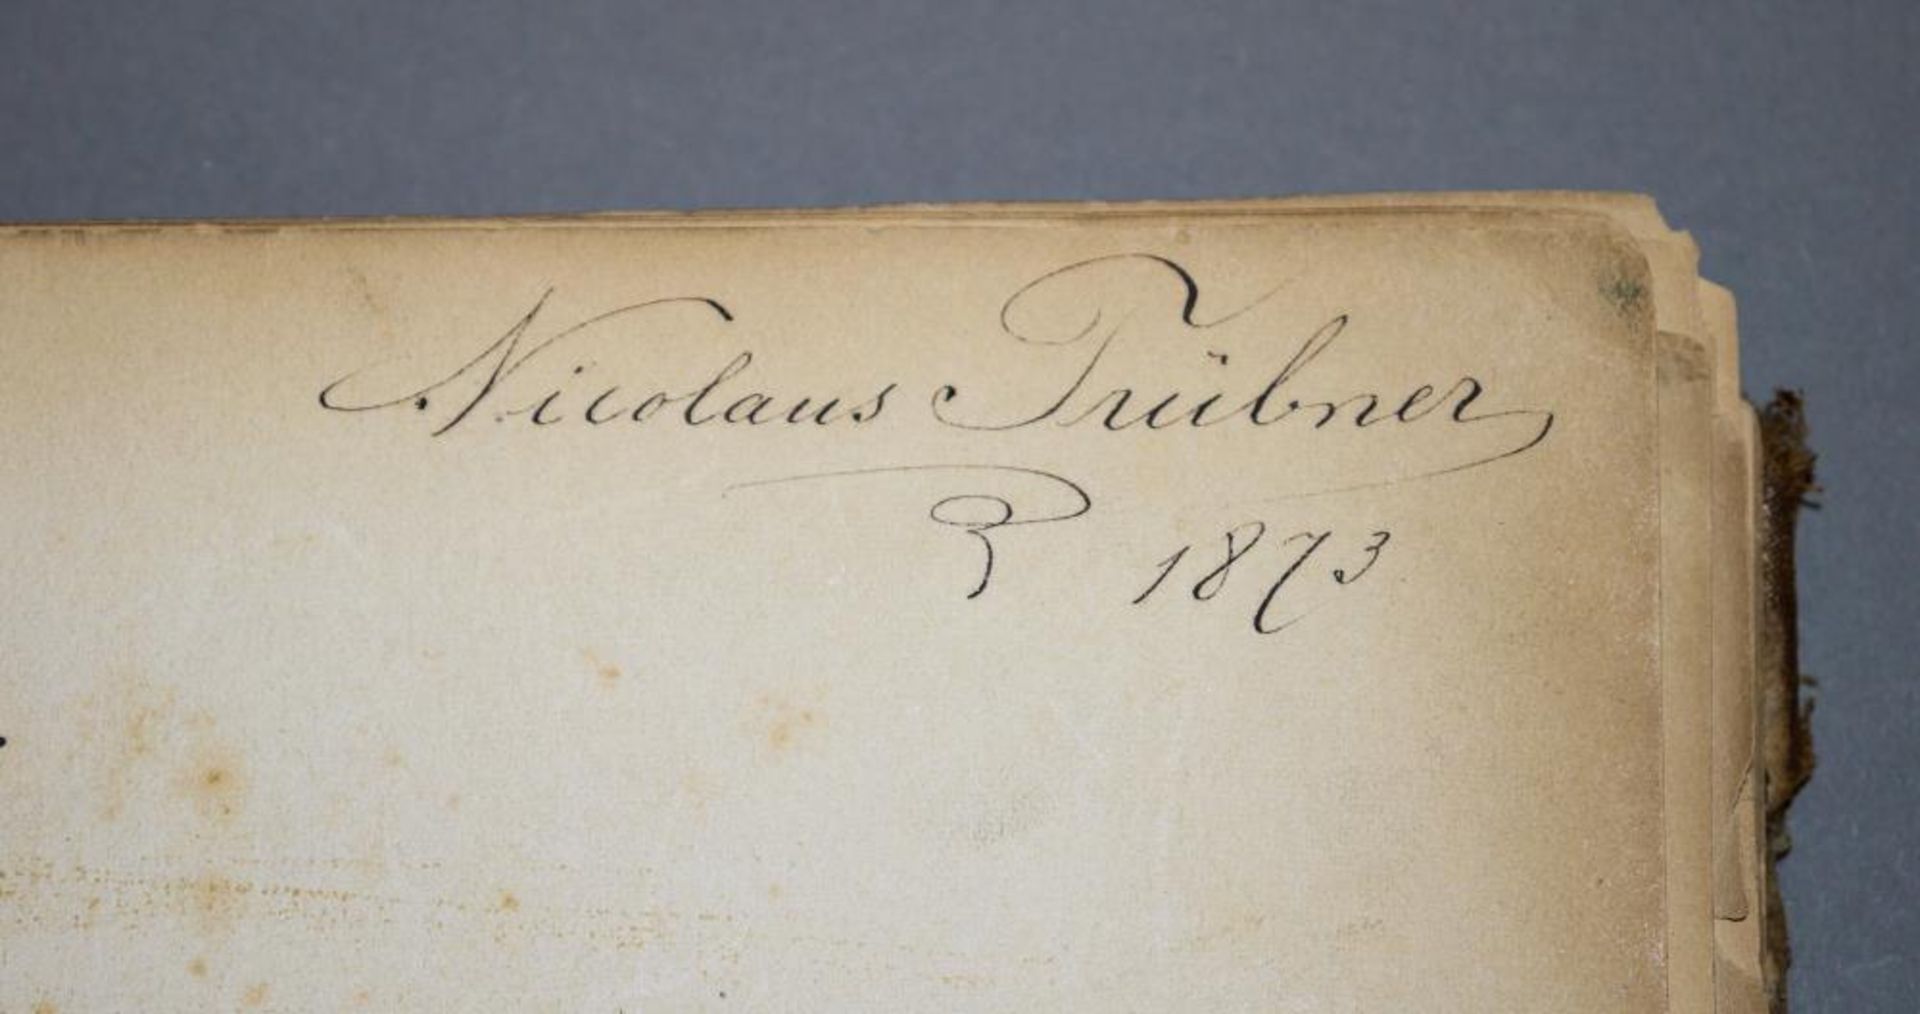 Nicolaus Trübner
1873